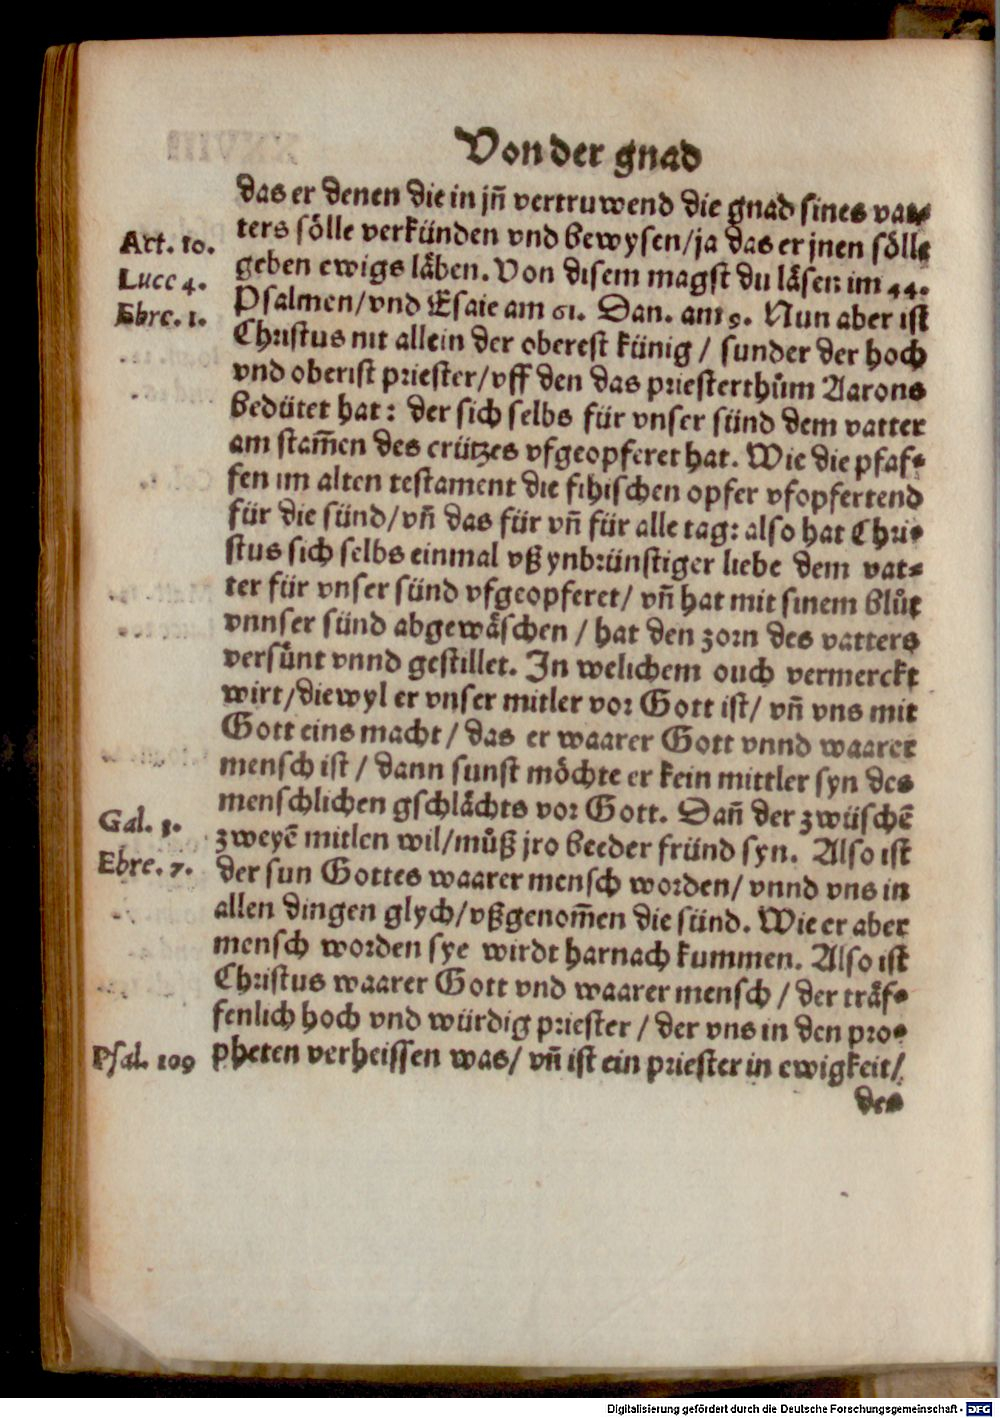 Von der gnad
das er denen die in jñ vertruwend die gnad sines vat⸗
ters sölle verkünden vnd bewysen/ja das er jnen sölle
Act. 10.
geben ewigs läben. Von disem magst du läsen im 44.
Luce 4.
Psalmen/vnd Esaie am 61. Dan. am 9. Nun aber ist
Ebre. 1.
Christus nit allein der oberest künig / sunder der hoch
vnd oberist priester/vff den das priesterthům Aarons
bedütet hat: der sich selbs für vnser sünd dem vatter
am stam̃en des crützes vfgeopferet hat. Wie die pfaf⸗
fen im alten testament die fihischen opfer vfopfertend
für die sünd/vñ das für vñ für alle tag: also hat Chri⸗
stus sich selbs einmal vß ynbrünstiger liebe dem vat⸗
ter für vnser sünd vfgeopferet/ vñ hat mit sinem blůt
vnnser sünd abgewäschen / hat den zorn des vatters
versůnt vnnd gestillet. In welichem ouch vermerckt
wirt/diewyl er vnser mitler vor Gott ist/ vñ vns mit
Gott eins macht / das er waarer Gott vnnd waarer
mensch ist / dann sunst möchte er kein mittler syn des
menschlichen gschlächts vor Gott. Dañ der zwüschẽ
zweyẽ mitlen wil/můß jro beeder fründ syn. Also ist
Gal. 3.
der sun Gottes waarer mensch worden/ vnnd vns in
Ebre. 7.
allen dingen glych/vßgenom̃en die sünd. Wie er aber
mensch worden sye wirdt harnach kummen. Also ist
Christus waarer Gott vnd waarer mensch / der träf⸗
fenlich hoch vnd würdig priester / der vns in den pro⸗
pheten verheissen was/ vñ ist ein priester in ewigkeit/
Psal. 109
des
Digitalisierung gefördert durch die Deutsche Forschungsgemeinschaft - DFG